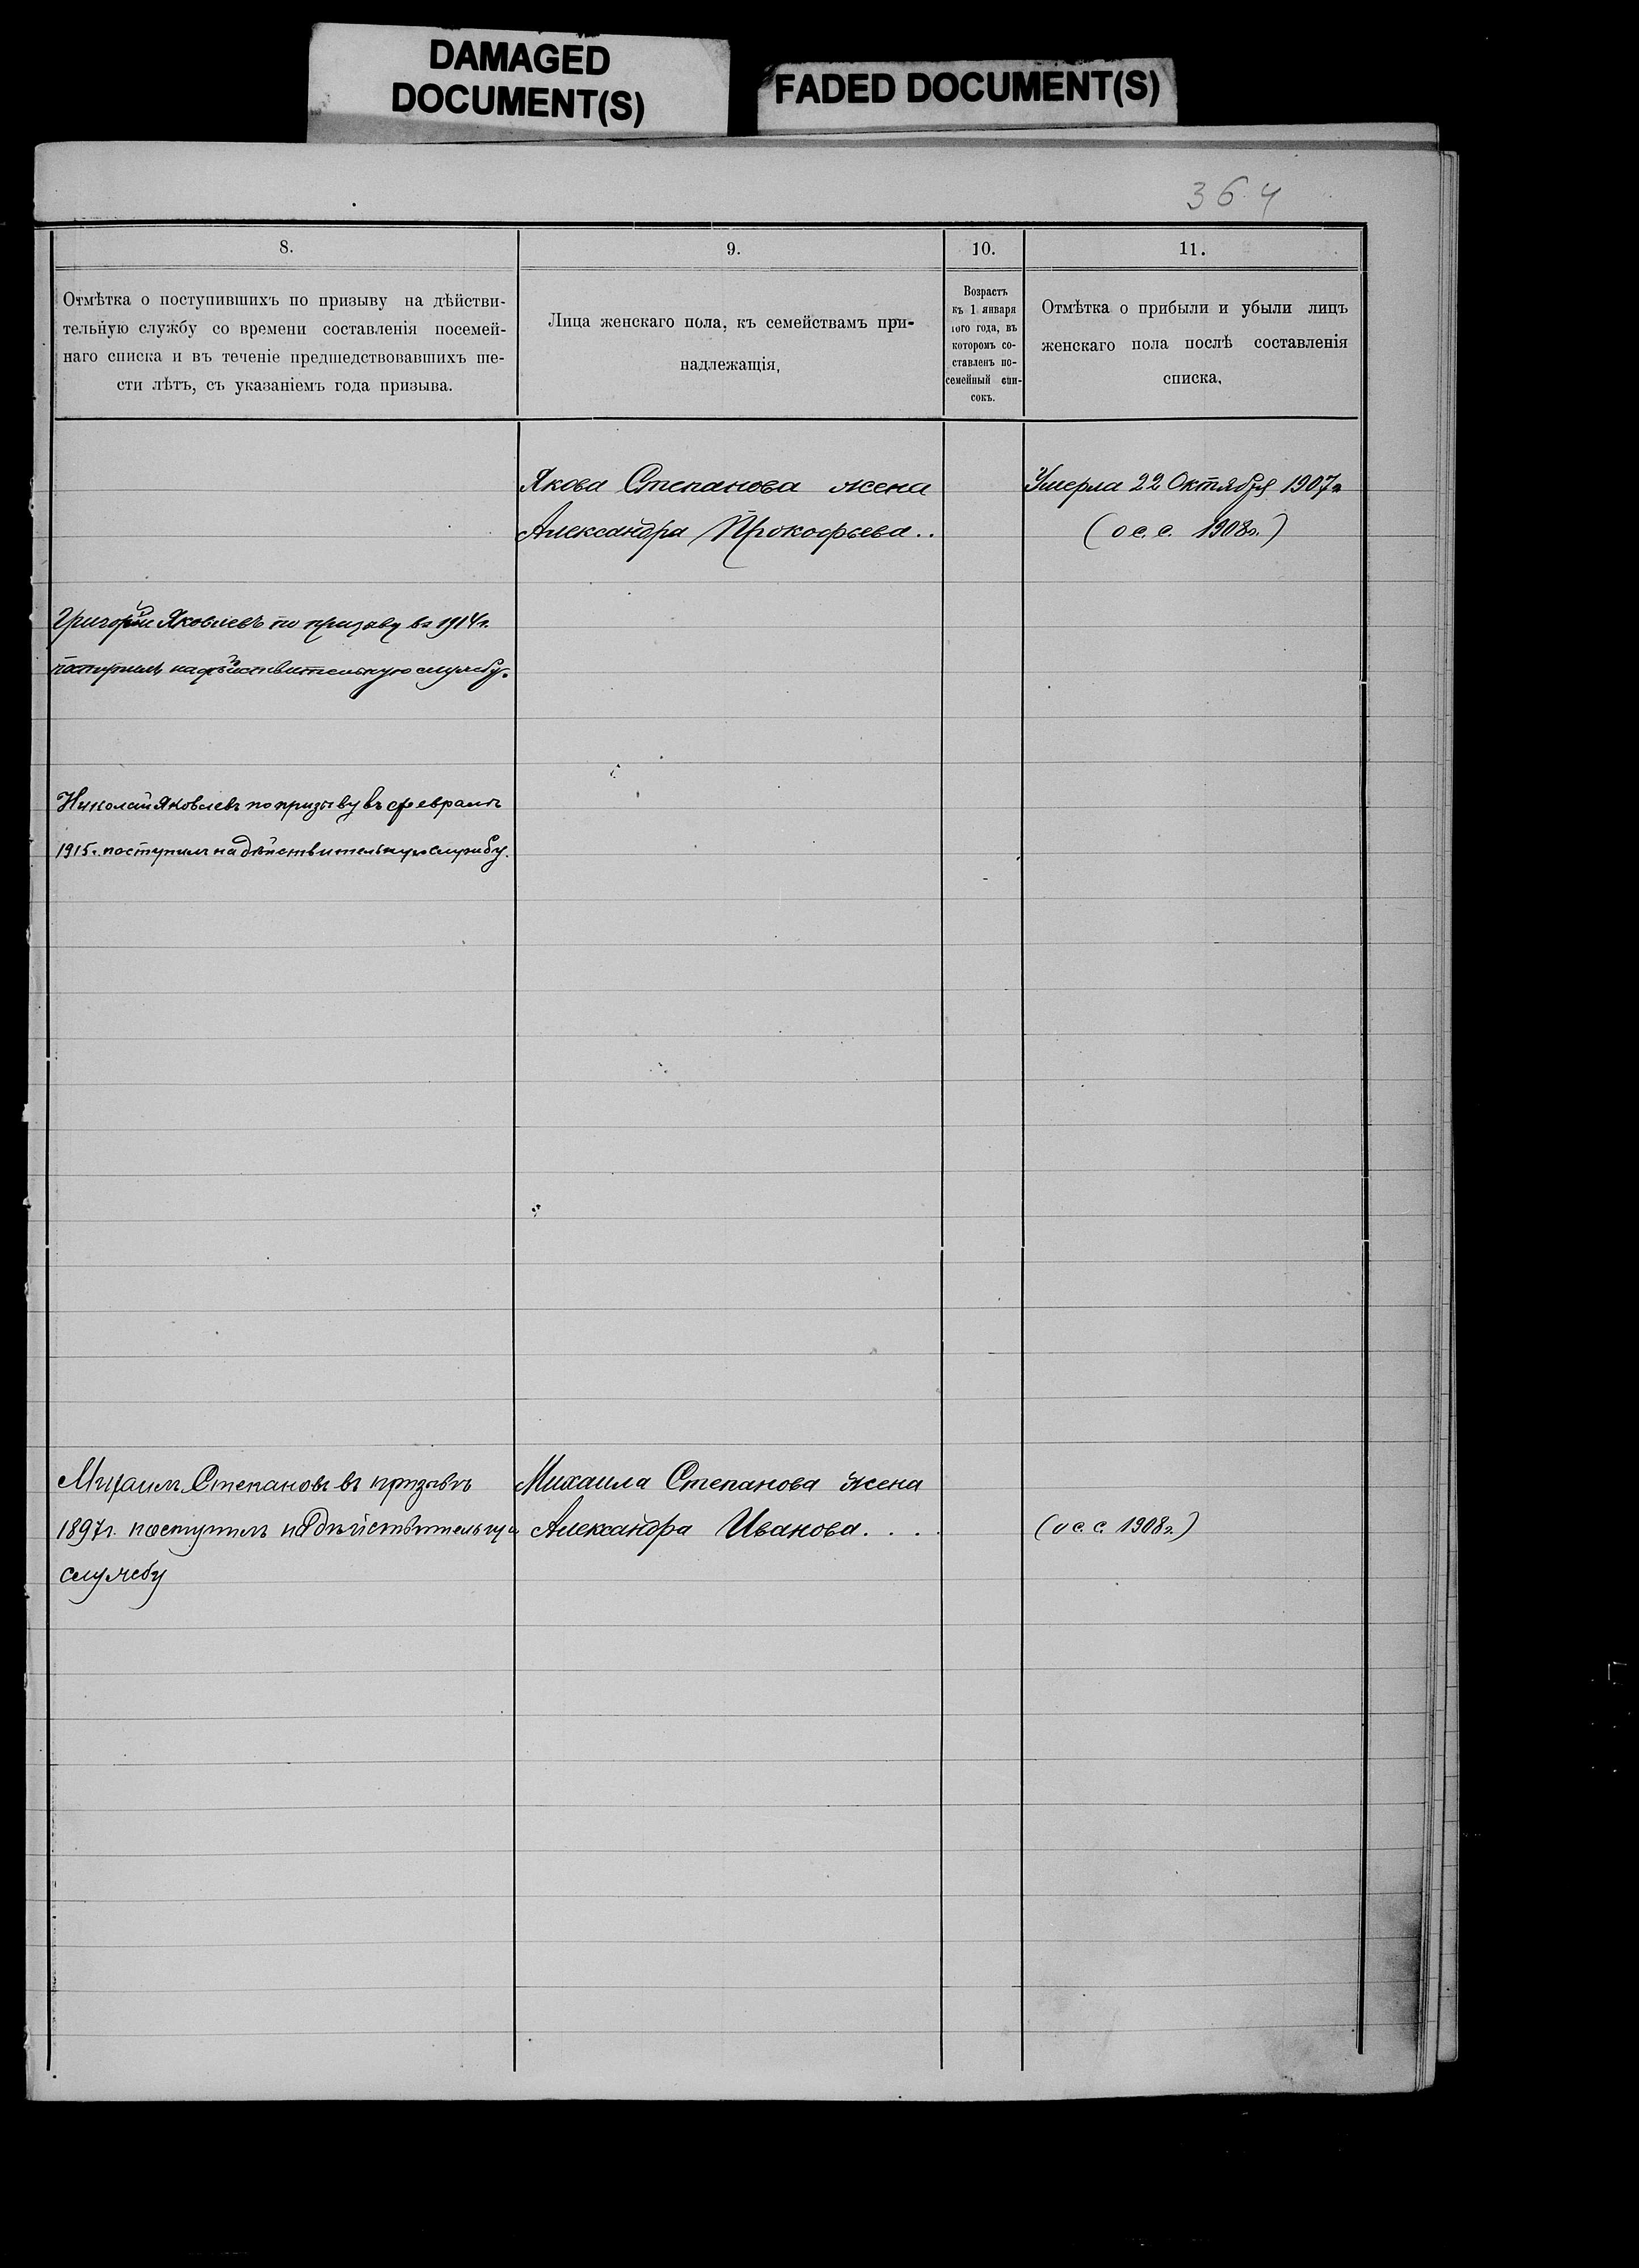 DAMAGED
DOCUMENT(S)
FADED DOCUMENT(S)
364
8.
Отмѣтка о поступившихъ по призыву на дѣйстви-
тельную службу со времени составленія посемей-
наго списка и въ теченіе предшедствовавшихъ ше-
сти лѣтъ, съ указаніемъ года призыва.
9.
Лица женскаго пола, къ семействамъ при-
надлежащія,
10.
Возрастъ
къ 1 января
того года, въ
которомъ со-
ставленъ по-
семейный спи-
сокъ.
11.
Отмѣтка о прибыли и убыли лицъ
женскаго пола послѣ составленія
списка,
Якова Степанова жена
Александра Прокофьева..
Умерла 22 Октября 1907г
(о с. с. 1908г.)
Григорій Яковлевъ по призыву въ 1914г.
поступилъ на дѣйствительную службу.
Николай Яковлевъ по призыву въ февралѣ
1915г. поступилъ на дѣйствительную службу.
Михаилъ Степановъ въ призывъ
1897г. поступилъ на дѣйствительную
службу
Михаила Степанова жена
Александра Иванова....
(о с. с. 1908г.)